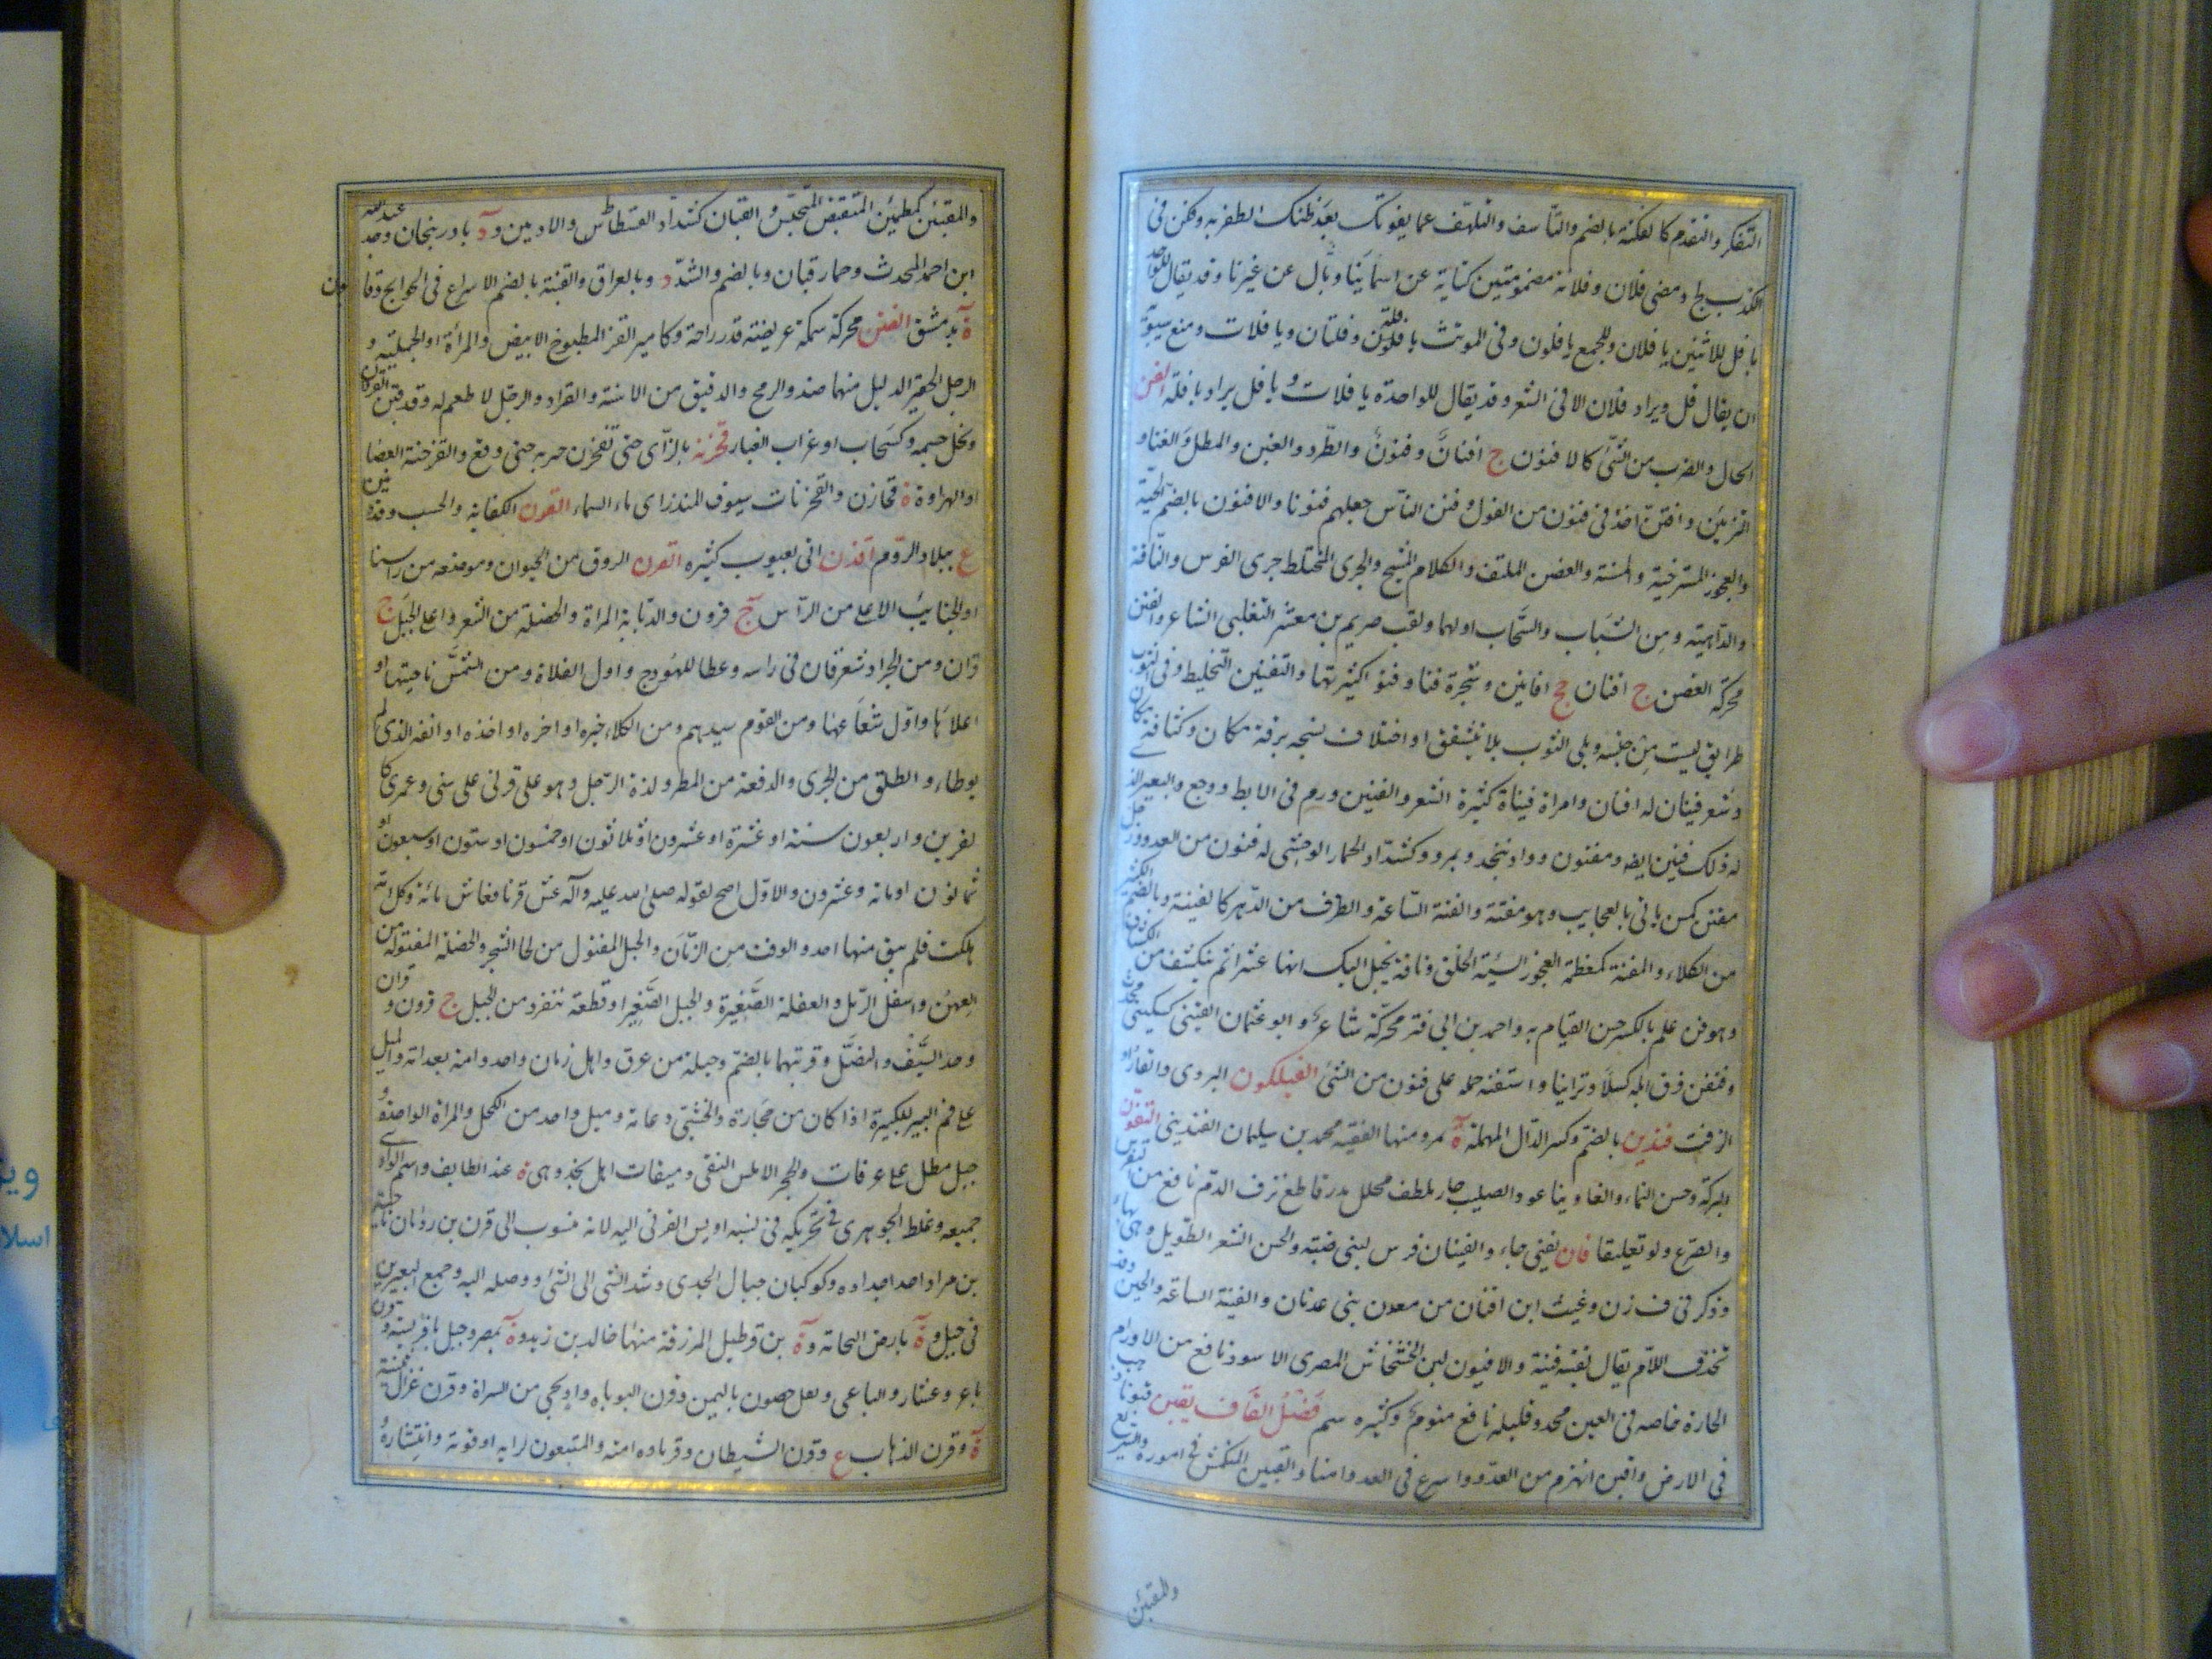 التفكر والتقدم كالفكنة بالضم والتأسف والتلهف عما يفوتك بعد ظنك الظفر به وفكن فى
الكذب لج ومضى فلان وفلانة مضمومتين كناية عن اسمائنا وبأل عن غيرنا وقد يقال للواحد
يا فل للاثنين يا فلان وللجمع يا فلون وفى المونث يا فلة وفلتان ويا فلات ومنع سيبويه
ان يقال فل ويراد فلان الا فى الشعر وقد يقال للواحدة يا فلات ويا فل يراد يا فلة الفن
الحال والضرب من الشئ كالافنون ج افنان وفنون والطرد والغبن والمطل والعناء و
التزيين وافتن اخذ فى فنون من القول وفنن الناس جعلهم فنونا والافنون بالضم الحية
والعجوز المسترخية والمسنة والغصن الملتف والكلام المثبج والجرى المختلط جرى الفرس والناقة
والداهية ومن الشباب والسحاب اولهما ولقب صريم بن معشر التغلبى الشاعر والفنن
محركة الغصن ج افنان جج افانين وشجرة فنا وفنوا كثيرتها والتفنين التخليط وفى الثوب
طرايق ليست من جنسه وبلى الثوب بلا تشقق او اختلاف نسجه برقة مكان وكثافة مكان
وشعر فينان له افنان وامراة فينانة كثيرة الشعر والفنين ورم فى الابط ووجع والبعير الذ
له ذلك فنين ايضه ومفنون وواد بنجد و بمرو وكشداد الحمار الوحشى له فنون من العدو ورجل
مفنن كمسن ياتى بالعجايب وهو مفنة والفنة الساعة والطرف من الدهر كالفينة وبالضم الكثير
من الكلاء والمفننة كمعظمة العجوز السيئة الخلق وناقة يخيل اليك انها عشراء ثم تنكشف من الكشاف
وهو فن علم بالكسر حسن القيام به واحمد بن ابى فنن محركة شاعر وابو عثمان الفنينى كسكينى محدث
وفنفن فرق ابله كسلا وتوانيا واستفنه حمله على فنون من الشئ الفيلكون البردى والقار او
الزفت فندين بالضم وكسر الدال المهملة ة بمرو منها الفقيه محمد بن سليمان الفندينى التفون
البركة وحسن النماء والفاوينا عود الصليب حار لطف محلل مدر قاطع نزف الدم نافع من النقرس
والصرع ولو تعليقا فان يفين جاء والفينان فرس لبنى ضبة والحسن الشعر الطويل وهى بهاء
وذكر فى ف ن ن وغيث ابن افنان من معون بنى عدنان والفينة الساعة والحين وقد
تحذف اللام يقال لقيته فينة والافيون لبن الخشخاش المصرى الاسود نافع من الاورام
الحارة خاصة فى العين مخدر وقليله نافع منوم وكثيره سم فصل القاف يقبن قبونا ذهب
فى الارض واقبن انهزم من العدو واسرع فى العدو امنا والقبين المنكمش فى اموره والسريع
والمقبئن
والمقبئن كمطمئن المنقبض المنخنس والقبان كشداد القسطاس والامين و د باذربيجان وجد عبد الله
ابن احمد المحدث وحمار قبان وبالضم والشد د وبالعراق والقبنة بالضم الاسراع فى الحوايج وقابون
ة بدمشق القتن محركة سمكة عريضة قدر راحة وكامير القز المطبوخ الابيض والمرأة او الجميلة و
الرجل الحقير الذليل منهما ضد والرمح والدقيق من الاسنة والقراد والرجل لا طعم له وقد قتن ككرم
ونحل جسمه وكسحاب او غراب الغبار قحزنه بالزاى حتى تقحزن ضربه حتى وقع والقحزنة العصا
او الهراوة ة قحازن والقحزنات سيوف المنذر اى ماء السماء القدن الكفاية والحسب وقدونين
ع ببلاد الروم اقذن اتى بعيوب كثيرة القرن الروق من الحيوان وموضعه من راسنا
او الجانب الاعلى من الراس ج قرون والذؤابة المراة والخصلة من الشعر واعلى الجبل ج
قران ومن الجراد شعرتان فى راسه وغطاء للهودج واول الفلاة ومن الشمس ناحيتها او
اعلاها واول شعاعها ومن القوم سيدهم ومن الكلاء خيره او اخره او انفه الذى لم
يوطاء والطلق من الجرى والدفعة من المطر ولدة الرجل وهو على قرنى على سنى وعمرى كا
لقرين واربعون سنة او عشرة او عشرون او ثلاثون او خمسون او ستون او سبعون او
ثمانون او مائة وعشرون والاول اصح لقوله صلى الله عليه وآله عش قرنا فعاش مائة وكل امة
هلكت فلم يبق منها احد والوقت من الزمان والحبل المفتول من لحا الشجر والخصلة المفتولة من
العهن واسفل الرمل والعفلة الصغيرة والجبل الصغير او قطعة تنفرد من الجبل ج قرون و قران
وحد السيف والنصل وقرنتهما بالضم وحلبة من عرق واهل زمان واحد وامة بعد امة والميل
على فم البير للبكرة اذا كان من حجارة والخشبى دعامة وميل واحد من الكحل والمراة الواحدة و
جبل مطل على عرفات والحجر الاملس النقى وميقات اهل نجد وهى ة عند الطايف واسم الوادى
جميعه وغلط الجوهرى فى تحريكه فى نسبة اويس القرنى اليه لانه منسوب الى قرن بن رومان بن ناجية
بن مراد احد اجداده وكوكبان حيال الجدى وشد الشى الى الشئ ووصله اليه وجمع البعيرين
فى حبل و ة بارض النحامة و ة بين قطربل والمزرفة منها خالد بن زيد و ة بمصر وجبل بافريقية وقرن
باعر وعشار والناعى وبقل حصون باليمن وقرن البوباة واد يجئ من السراة وقرن غزال ثنية
ة وقرن الذهاب ع وقرن الشيطان وقرناه امته والمتبعون لرايه او قوته وانتشاره